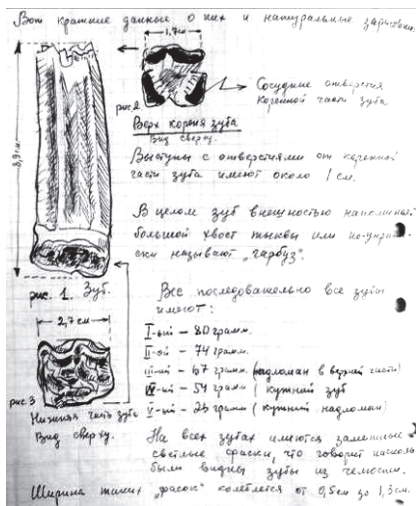 Вот краткие данные о них и натуральные зарисовки.
1,7см
8,9см
рис 2
Сосудные отверстия
коренной части зуба
Верх корня зуба
Вид сверху.
Выступы с отверстиями от коренной
части зуба имеют около 1 см.
В целом зуб внешностью напоминает
большой хвост тыквы или по-украин-
ски называют „гарбуз".
рис. 1. Зуб.
2,7см
рис 3
Нижняя часть зуба
Вид сверху.
Все последовательно все зубы
имеют:
I-ый – 80 грамм.
II-ой – 74 грамм.
III-ий – 67 грамм. (надломан в верхней части)
IV-ый – 54 грамм (кутний зуб
V-ый – 25 грамм (кутний надломан)
На всех зубах имеются заметные
светлые фаски, что говорит насколь
были видны зубы из челюсти.
Ширина таких „фасок" колеблется от 0,5см до 1,3см.